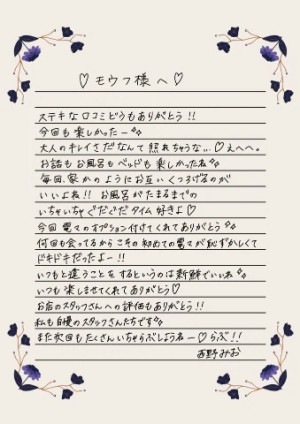 ♡モウフ様へ♡
ステキな口コミどうもありがとう!!
今回も楽しかったー
大人のキレイさだなんて照れちゃうな...♡えへへ。
お話もお風呂もベッドも楽しかったね
毎回、家かのようにお互いくつろげるのが
いいよね!! お風呂がたまるまでの
いちゃいちゃぐだぐだタイム好きよ♡
今回 電マのオプション付けてくれてありがとう
何回も会ってるからこその初めての電マが恥ずかしくて
ドキドキだったよー!!
いつもと違うことをするというのは新鮮でいいね
いつも楽しませてくれてありがとう♡
お店のスタッフさんへの評価もありがとう!!
私も自慢のスタッフさんたちです
また次回もたくさんいちゃらぶしようねー♡らぶ!!
西野みお